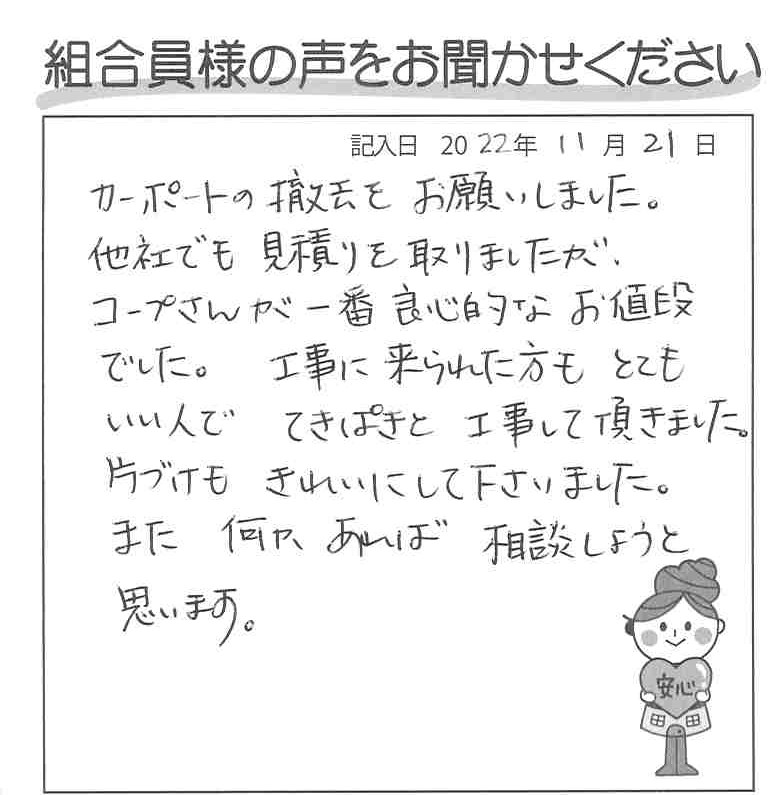 組合員様の声をお聞かせください
記入日 2022年 11月 21日
カーポートの撤去を お願いしました。
他社でも 見積りを取りましたが、
コープさんが一番良心的な お値段
でした。 工事に来られた方も とても
いい人で てきぱきと 工事して頂きました。
片づけも きれいにして下さいました。
また 何か、あれば 相談しようと
思います。
安心